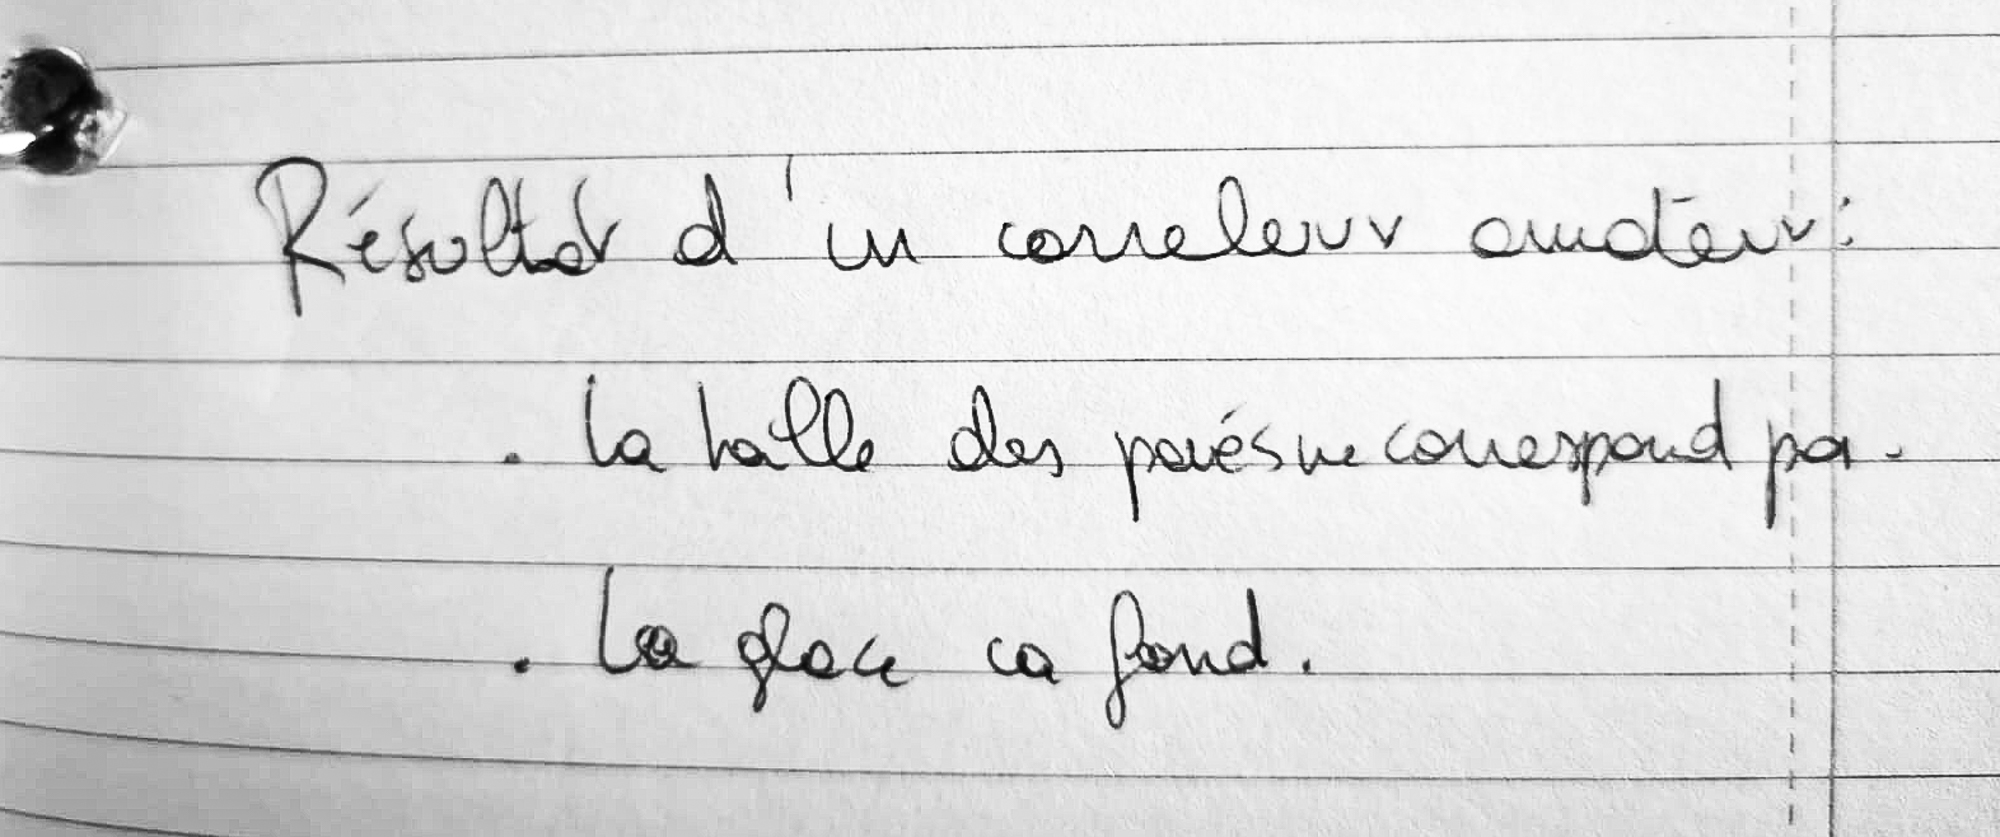 Résultat d'un carreleur amateur :
. La taille des pavés ne correspond pas.
. La glace ca fond.